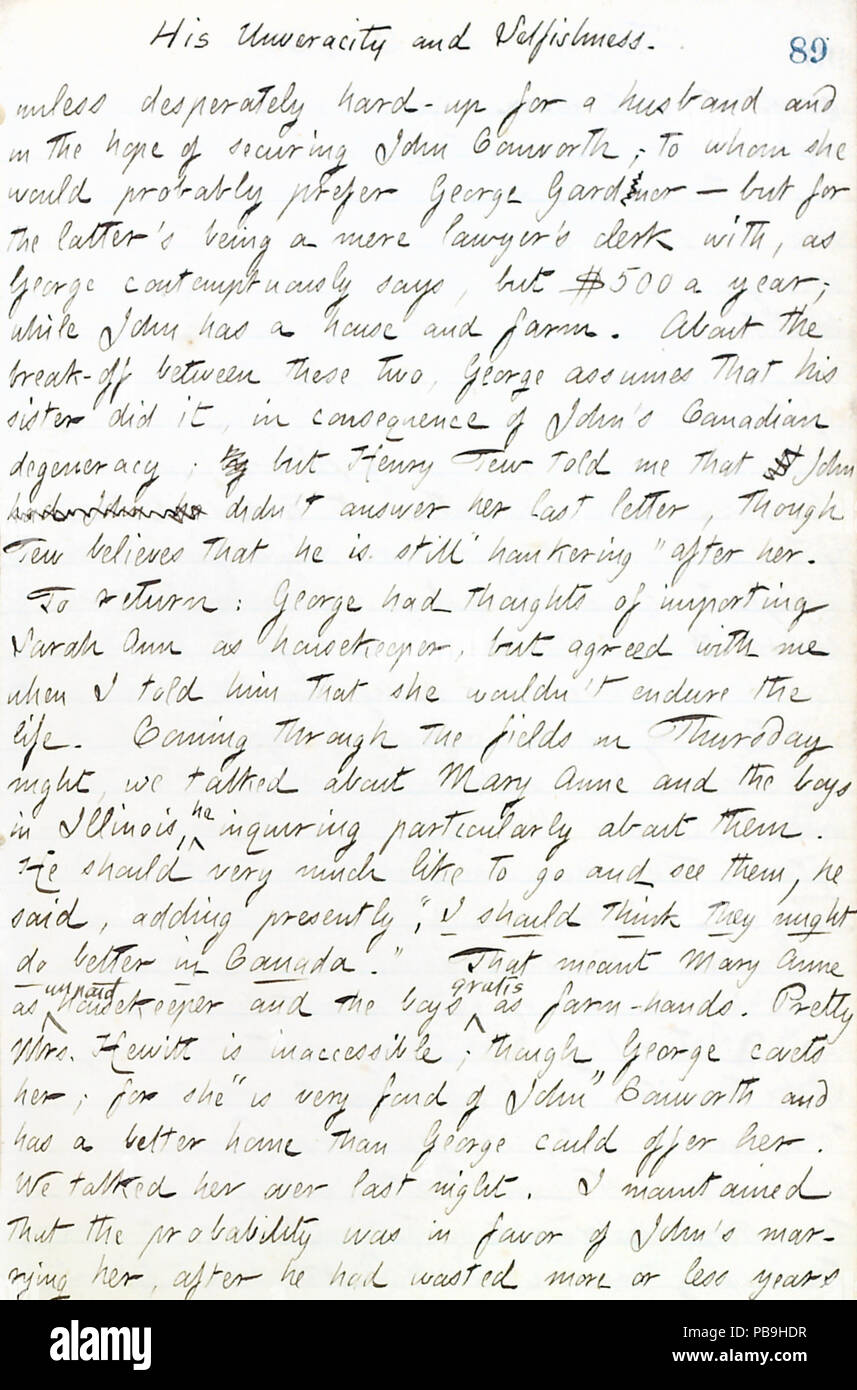 His Unveracity and Selfishness.
89
unless desperately hard-up for a husband and
in the hope of securing John Conworth; to whom she
would probably prefer George Gardiner — but for
the latter's being a mere lawyer's clerk with, as
George contemptuously says, but $500 a year;
while John has a house and farm. About the
break-off between these two, George assumes that his
sister did it, in consequence of John's Canadian
degeneracy; but Henry Tew told me that John
didn't answer her last letter, though
Tew believes that he is still "hankering" after her.
To return: George had thoughts of importing
Sarah Ann as housekeeper, but agreed with me
when I told him that she wouldn't endure the
life. Coming through the fields on Thursday
night, we talked about Mary Anne and the boys
in Illinois, he inquiring particularly about them.
He should very much like to go and see them, he
said, adding presently, "I should think they might
do better in Canada." That meant Mary Anne
as unpaid housekeeper and the boys gratis as farm-hands. Pretty
Mrs. Hewitt is inaccessible; though George covets
her; for she "is very fond of John" Conworth and
has a better home than George could offer her.
We talked her over last night. I maintained
that the probability was in favor of John's mar-
rying her, after he had wasted more or less years
alamy
Image ID: PB9HDR
www.alamy.com